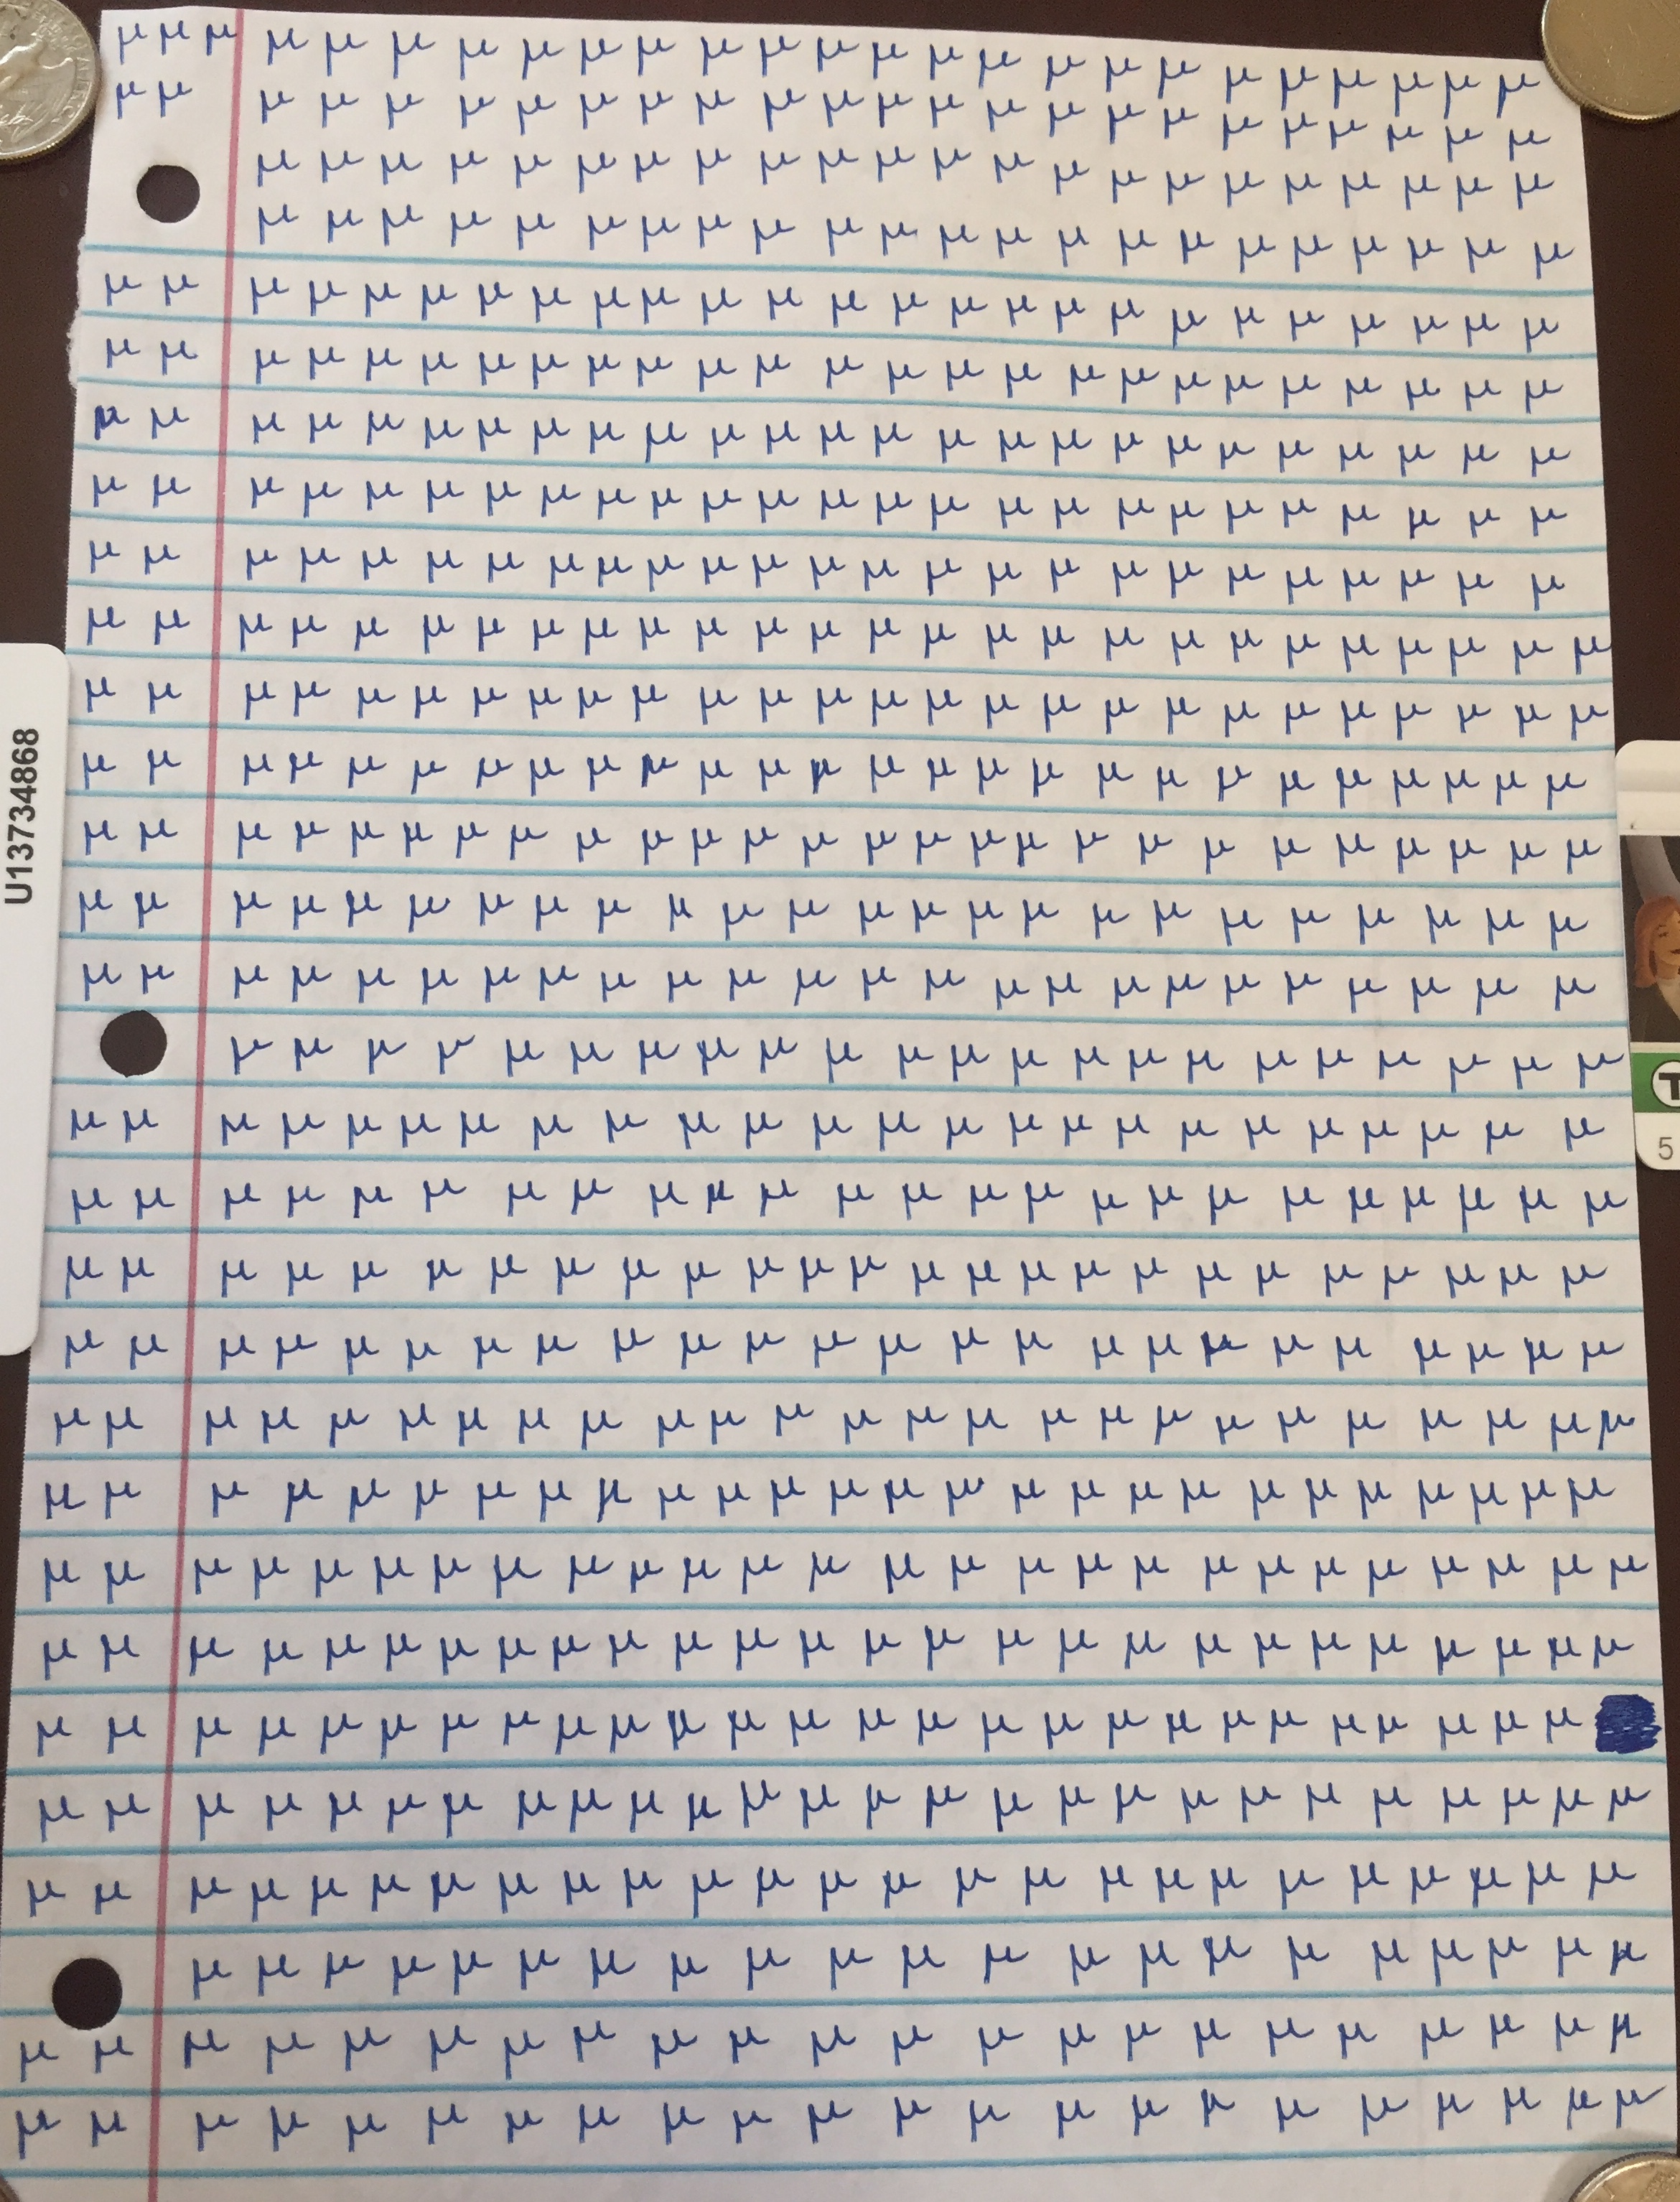 μ μ μ μ μ μ μ μ μ μ μ μ μ μ μ μ μ μ μ μ μ μ μ μ μ
μ μ μ μ μ μ μ μ μ μ μ μ μ μ μ μ μ μ μ μ μ μ μ μ
μ μ μ μ μ μ μ μ μ μ μ μ μ μ μ μ μ μ μ μ μ μ
μ μ μ μ μ μ μ μ μ μ μ μ μ μ μ μ μ μ μ μ μ μ
μ μ μ μ μ μ μ μ μ μ μ μ μ μ μ μ μ μ μ μ μ μ μ μ μ
μ μ μ μ μ μ μ μ μ μ μ μ μ μ μ μ μ μ μ μ μ μ μ μ μ
μ μ μ μ μ μ μ μ μ μ μ μ μ μ μ μ μ μ μ μ μ μ μ μ μ
μ μ μ μ μ μ μ μ μ μ μ μ μ μ μ μ μ μ μ μ μ μ μ μ μ
μ μ μ μ μ μ μ μ μ μ μ μ μ μ μ μ μ μ μ μ μ μ μ μ μ
μ μ μ μ μ μ μ μ μ μ μ μ μ μ μ μ μ μ μ μ μ μ μ μ μ μ
μ μ μ μ μ μ μ μ μ μ μ μ μ μ μ μ μ μ μ μ μ μ μ μ μ μ
μ μ μ μ μ μ μ μ μ μ μ μ μ μ μ μ μ μ μ μ μ μ μ μ μ μ
μ μ μ μ μ μ μ μ μ μ μ μ μ μ μ μ μ μ μ μ μ μ μ μ μ μ
μ μ μ μ μ μ μ μ μ μ μ μ μ μ μ μ μ μ μ μ μ μ μ μ
μ μ μ μ μ μ μ μ μ μ μ μ μ μ μ μ μ μ μ μ μ μ μ μ
μ μ μ μ μ μ μ μ μ μ μ μ μ μ μ μ μ μ μ μ μ μ
μ μ μ μ μ μ μ μ μ μ μ μ μ μ μ μ μ μ μ μ μ μ μ μ
μ μ μ μ μ μ μ μ μ μ μ μ μ μ μ μ μ μ μ μ μ μ μ μ
μ μ μ μ μ μ μ μ μ μ μ μ μ μ μ μ μ μ μ μ μ μ μ μ μ
μ μ μ μ μ μ μ μ μ μ μ μ μ μ μ μ μ μ μ μ μ μ μ μ
μ μ μ μ μ μ μ μ μ μ μ μ μ μ μ μ μ μ μ μ μ μ μ μ μ
μ μ μ μ μ μ μ μ μ μ μ μ μ μ μ μ μ μ μ μ μ μ μ μ μ μ
μ μ μ μ μ μ μ μ μ μ μ μ μ μ μ μ μ μ μ μ μ μ μ μ μ μ
μ μ μ μ μ μ μ μ μ μ μ μ μ μ μ μ μ μ μ μ μ μ μ μ μ μ
μ μ μ μ μ μ μ μ μ μ μ μ μ μ μ μ μ μ μ μ μ μ μ μ μ μ
μ μ μ μ μ μ μ μ μ μ μ μ μ μ μ μ μ μ μ μ μ μ μ μ μ μ
μ μ μ μ μ μ μ μ μ μ μ μ μ μ μ μ μ μ μ μ μ μ μ μ μ
μ μ μ μ μ μ μ μ μ μ μ μ μ μ μ μ μ μ μ μ μ
μ μ μ μ μ μ μ μ μ μ μ μ μ μ μ μ μ μ μ μ μ μ
μ μ μ μ μ μ μ μ μ μ μ μ μ μ μ μ μ μ μ μ μ μ
U13734868
T
5